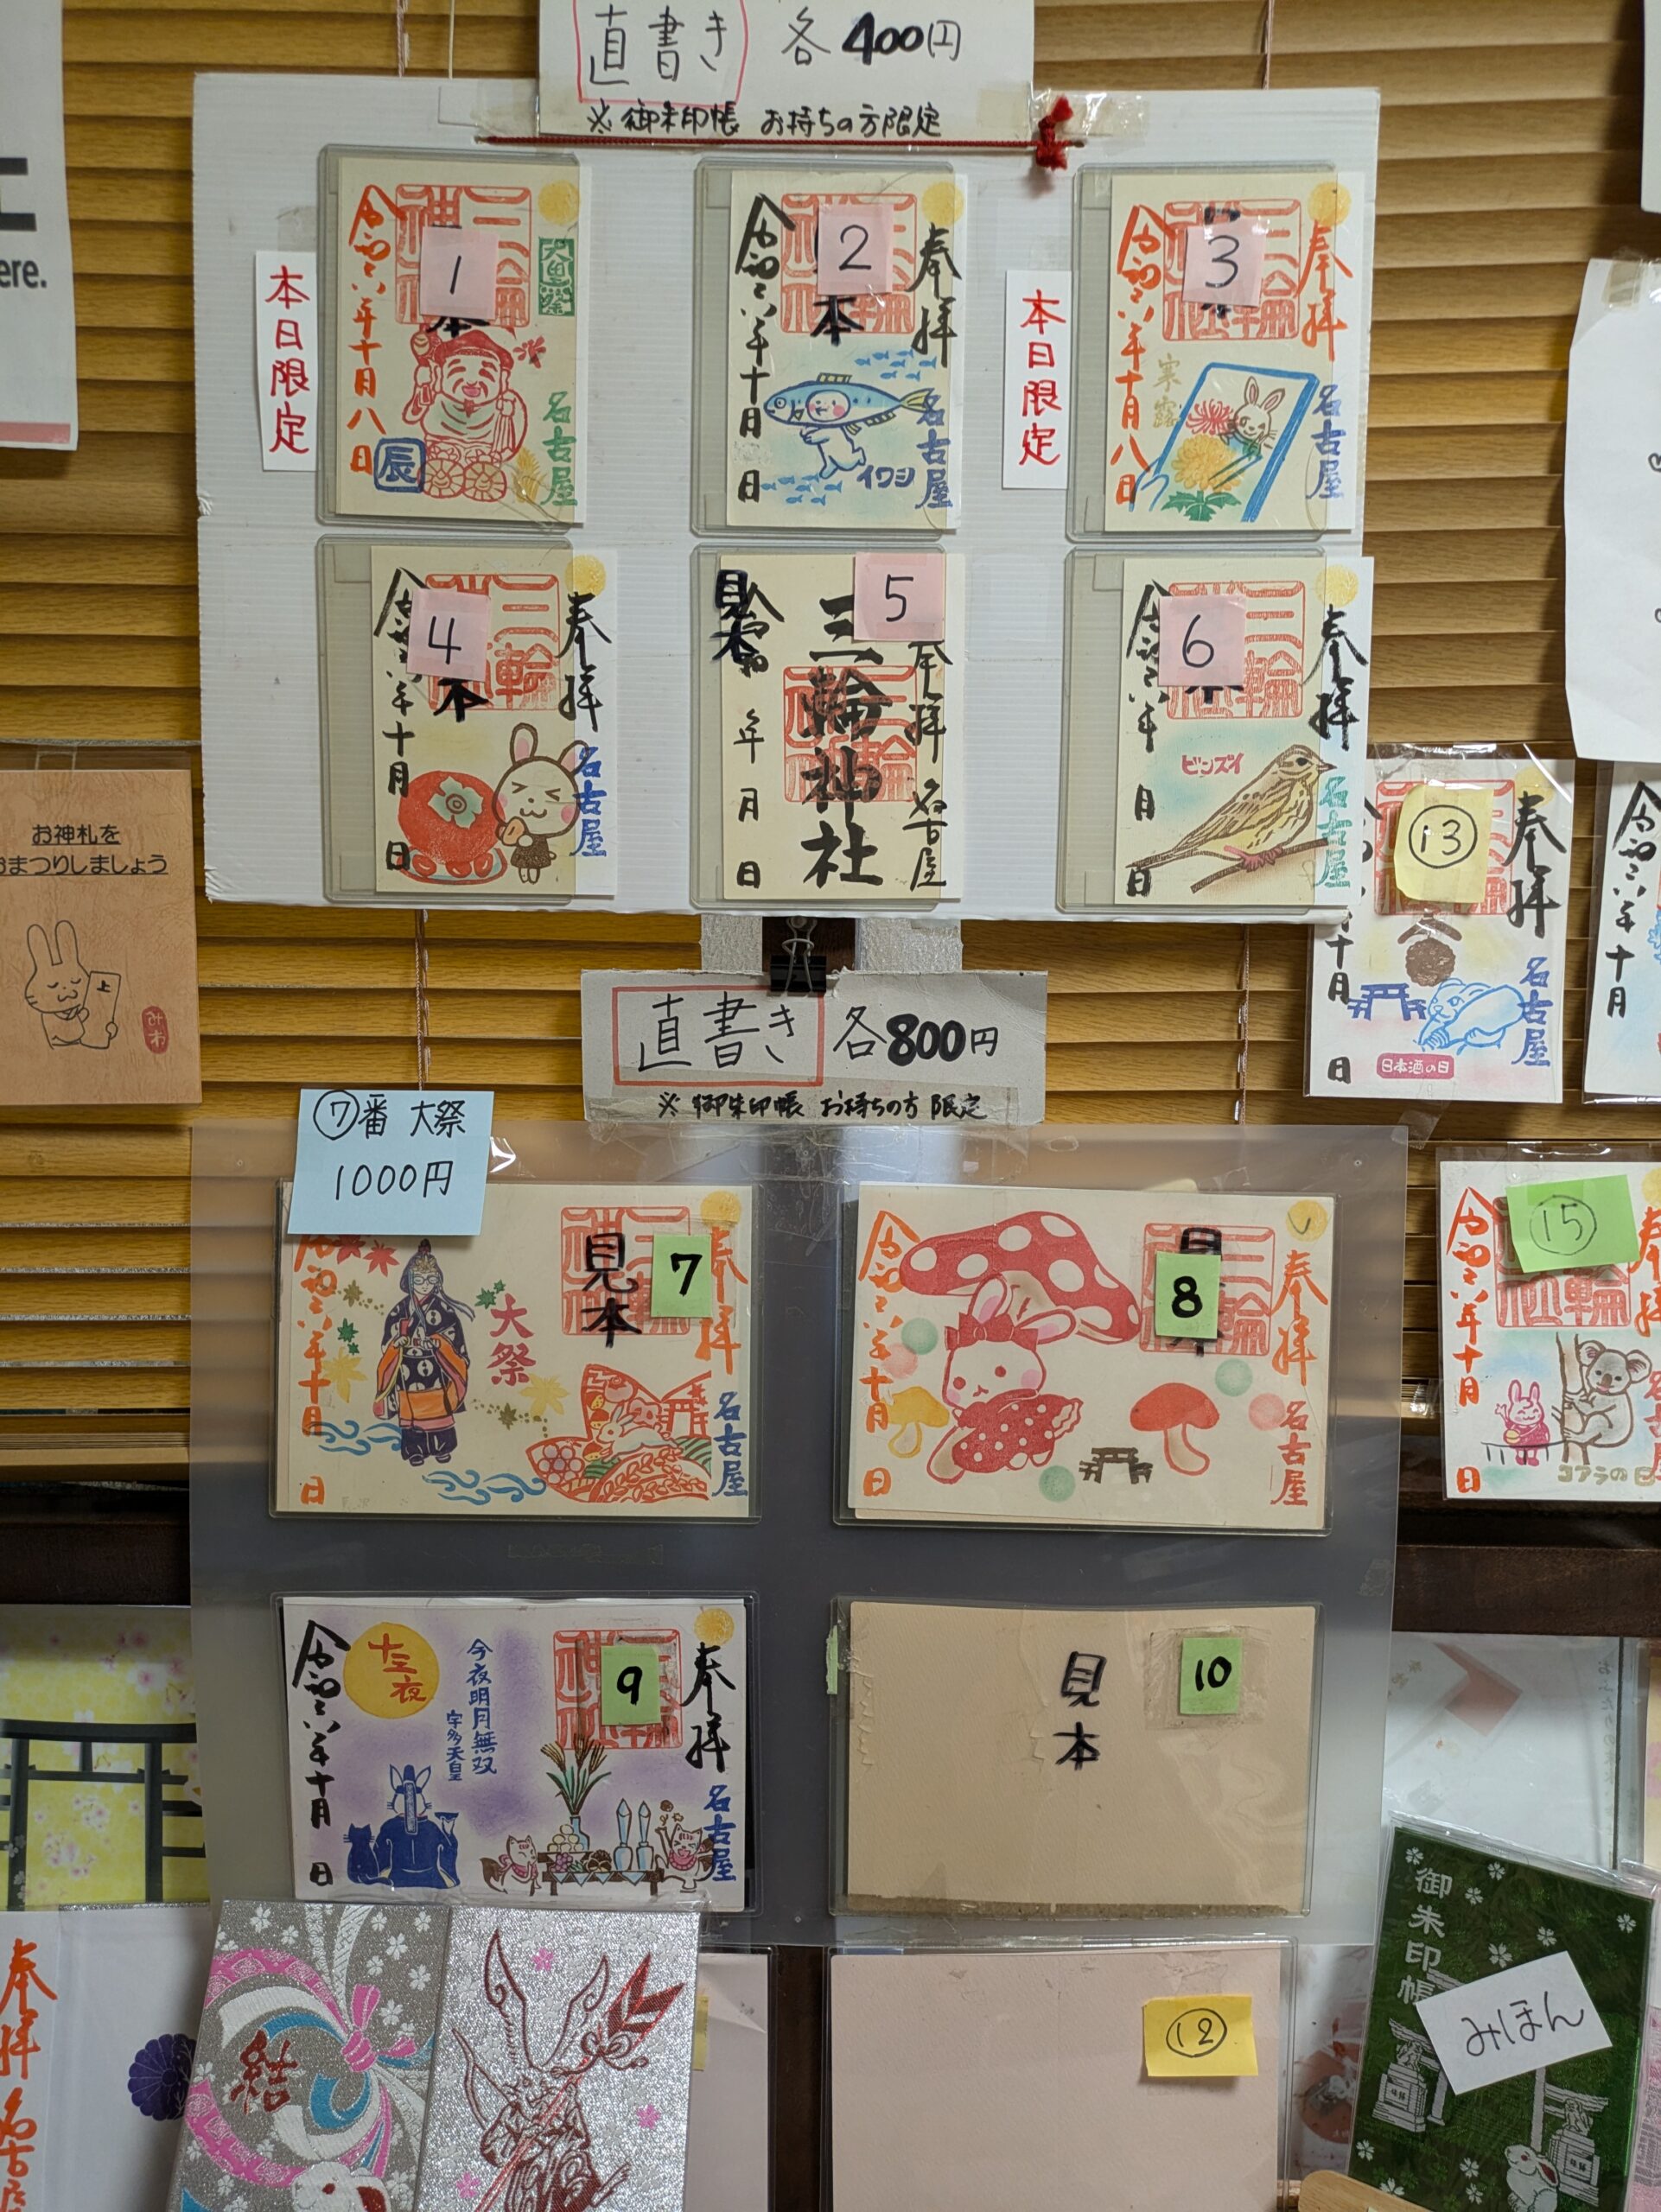 直書き 各400円
※御朱印帳 お持ちの方限定
本日限定
1
大黒祭
令和六年十月八日
辰
名古屋
2
本
奉拝
令和六年十月 日
イワシ
名古屋
本日限定
3
奉拝
令和六年十月八日
寒露
名古屋
4
本
奉拝
令和六年十月 日
名古屋
5
見本
奉拝
三輪神社
年 月 日
名古屋
6
奉拝
令和六年 月 日
ビンズイ
名古屋
13
奉拝
十月 日
名古屋
日本酒の日
令和六年十月
お神札を
おまつりしましょう
上
みわ
ere.
直書き 各800円
※御朱印帳 お持ちの方 限定
⑦番 大祭
1000円
7
見本
奉拝
大祭
令和六年十月 日
名古屋
8
奉拝
令和六年十月 日
名古屋
15
令和六年十月 日
コアラの日
9
奉拝
十三夜
今夜明月無双
宇多天皇
令和六年十月 日
名古屋
10
見本
12
奉拝
名古屋
結
御朱印帳
みほん